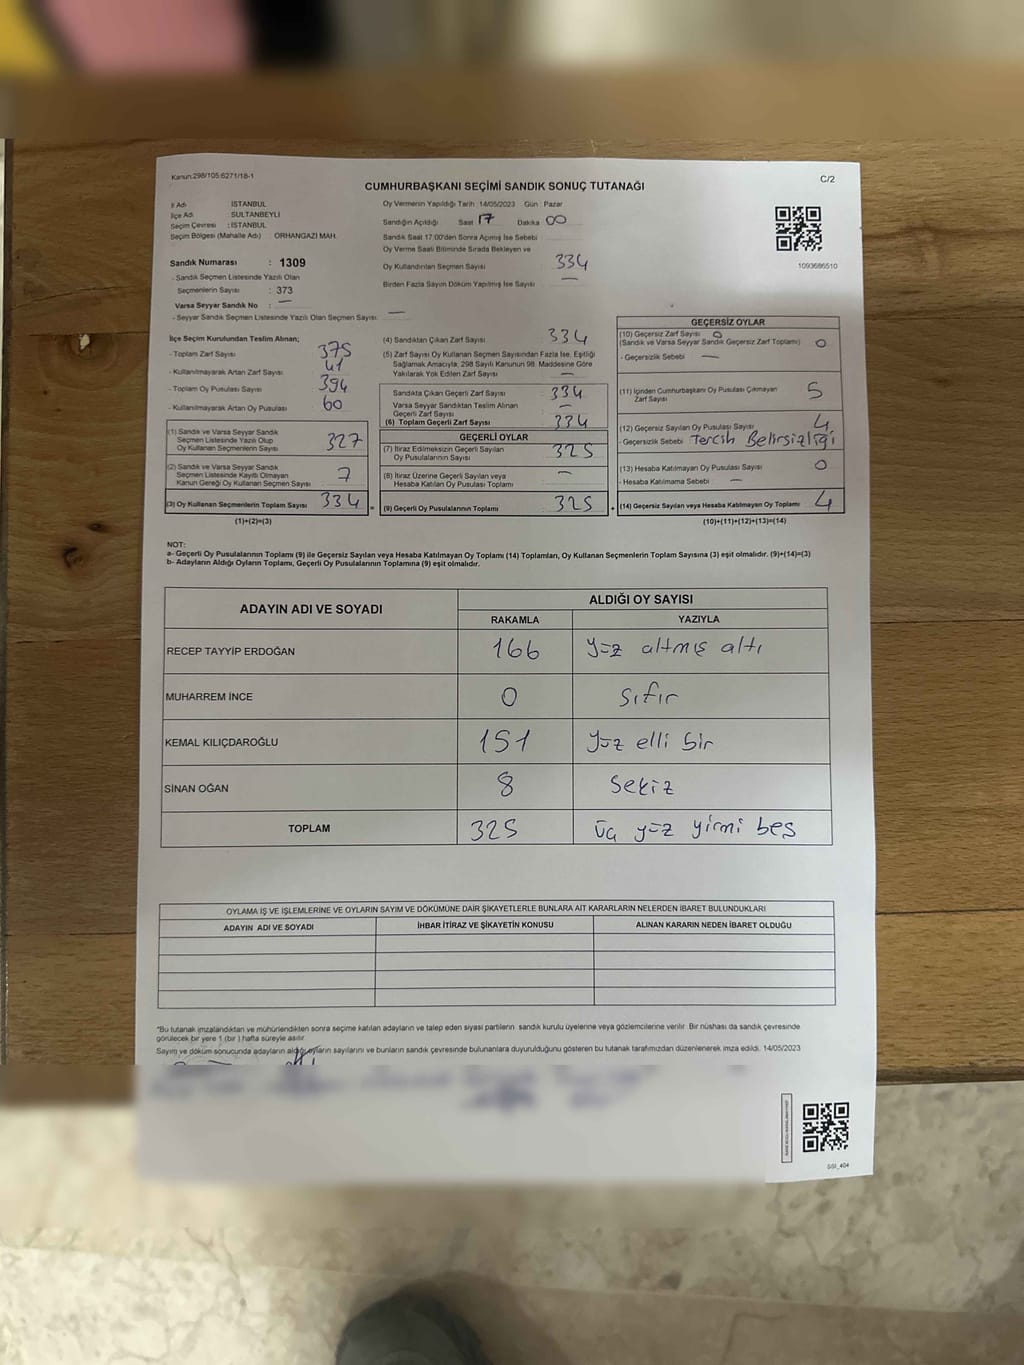 Kanun:298/105;6271/18-1
C/2
CUMHURBAŞKANI SEÇİMİ SANDIK SONUÇ TUTANAĞI
İl Adı : İSTANBUL
İlçe Adı : SULTANBEYLİ
Seçim Çevresi : İSTANBUL
Seçim Bölgesi (Mahalle Adı) ORHANGAZİ MAH.
Sandık Numarası : 1309
- Sandık Seçmen Listesinde Yazılı Olan
Seçmenlerin Sayısı : 373
Varsa Seyyar Sandık No : —
- Seyyar Sandık Seçmen Listesinde Yazılı Olan Seçmen Sayısı: —
Oy Vermenin Yapıldığı Tarih :14/05/2023 Gün : Pazar
Sandığın Açıldığı Saat 17 Dakika 00
Sandık Saat 17:00'den Sonra Açılmış İse Sebebi
Oy Verme Saati Bitiminde Sırada Bekleyen ve
Oy Kullandırılan Seçmen Sayısı 334
Birden Fazla Sayım Döküm Yapılmış İse Sayısı —
1093686510
İlçe Seçim Kurulundan Teslim Alınan;
- Toplam Zarf Sayısı 375
- Kullanılmayarak Artan Zarf Sayısı 41
- Toplam Oy Pusulası Sayısı 394
- Kullanılmayarak Artan Oy Pusulası 60
(1) Sandık ve Varsa Seyyar Sandık
Seçmen Listesinde Yazılı Olup
Oy Kullanan Seçmenlerin Sayısı 327
(2) Sandık ve Varsa Seyyar Sandık
Seçmen Listesinde Kayıtlı Olmayan
Kanun Gereği Oy Kullanan Seçmen Sayısı 7
(3) Oy Kullanan Seçmenlerin Toplam Sayısı 334
(1)+(2)=(3)
(4) Sandıktan Çıkan Zarf Sayısı 334
(5) Zarf Sayısı Oy Kullanan Seçmen Sayısından Fazla İse, Eşitliği
Sağlamak Amacıyla, 298 Sayılı Kanunun 98. Maddesine Göre
Yakılarak Yok Edilen Zarf Sayısı —
Sandıkta Çıkan Geçerli Zarf Sayısı 334
Varsa Seyyar Sandıktan Teslim Alınan
Geçerli Zarf Sayısı —
(6) Toplam Geçerli Zarf Sayısı 334
GEÇERLİ OYLAR
(7) İtiraz Edilmeksizin Geçerli Sayılan
Oy Pusulalarının Sayısı 325
(8) İtiraz Üzerine Geçerli Sayılan veya
Hesaba Katılan Oy Pusulası Toplamı —
= (9) Geçerli Oy Pusulalarının Toplamı 325 +
GEÇERSİZ OYLAR
(10) Geçersiz Zarf Sayısı 0
(Sandık ve Varsa Seyyar Sandık Geçersiz Zarf Toplamı) 0
- Geçersizlik Sebebi —
(11) İçinden Cumhurbaşkanı Oy Pusulası Çıkmayan
Zarf Sayısı 5
(12) Geçersiz Sayılan Oy Pusulası Sayısı 4
- Geçersizlik Sebebi Tercih Belirsizliği
(13) Hesaba Katılmayan Oy Pusulası Sayısı 0
- Hesaba Katılmama Sebebi —
(14) Geçersiz Sayılan veya Hesaba Katılmayan Oy Toplamı 4
(10)+(11)+(12)+(13)=(14)
NOT:
a- Geçerli Oy Pusulalarının Toplamı (9) ile Geçersiz Sayılan veya Hesaba Katılmayan Oy Toplamı (14) Toplamları, Oy Kullanan Seçmenlerin Toplam Sayısına (3) eşit olmalıdır. (9)+(14)=(3)
b- Adayların Aldığı Oyların Toplamı, Geçerli Oy Pusulalarının Toplamına (9) eşit olmalıdır.
ADAYIN ADI VE SOYADI ALDIĞI OY SAYISI
RAKAMLA YAZIYLA
RECEP TAYYİP ERDOĞAN 166 yüz altmış altı
MUHARREM İNCE 0 sıfır
KEMAL KILIÇDAROĞLU 151 yüz elli bir
SİNAN OĞAN 8 sekiz
TOPLAM 325 üç yüz yirmi beş
OYLAMA İŞ VE İŞLEMLERİNE VE OYLARIN SAYIM VE DÖKÜMÜNE DAİR ŞİKAYETLERLE BUNLARA AİT KARARLARIN NELERDEN İBARET BULUNDUKLARI
ADAYIN ADI VE SOYADI İHBAR İTİRAZ VE ŞİKAYETİN KONUSU ALINAN KARARIN NEDEN İBARET OLDUĞU
*Bu tutanak imzalandıktan ve mühürlendikten sonra seçime katılan adayların ve talep eden siyasi partilerin sandık kurulu üyelerine veya gözlemcilerine verilir. Bir nüshası da sandık çevresinde
görülecek bir yere 1 (bir ) hafta süreyle asılır.
Sayım ve döküm sonucunda adayların aldığı oyların sayılarını ve bunların sandık çevresinde bulunanlara duyurulduğunu gösteren bu tutanak tarafımızdan düzenlenerek imza edildi. 14/05/2023